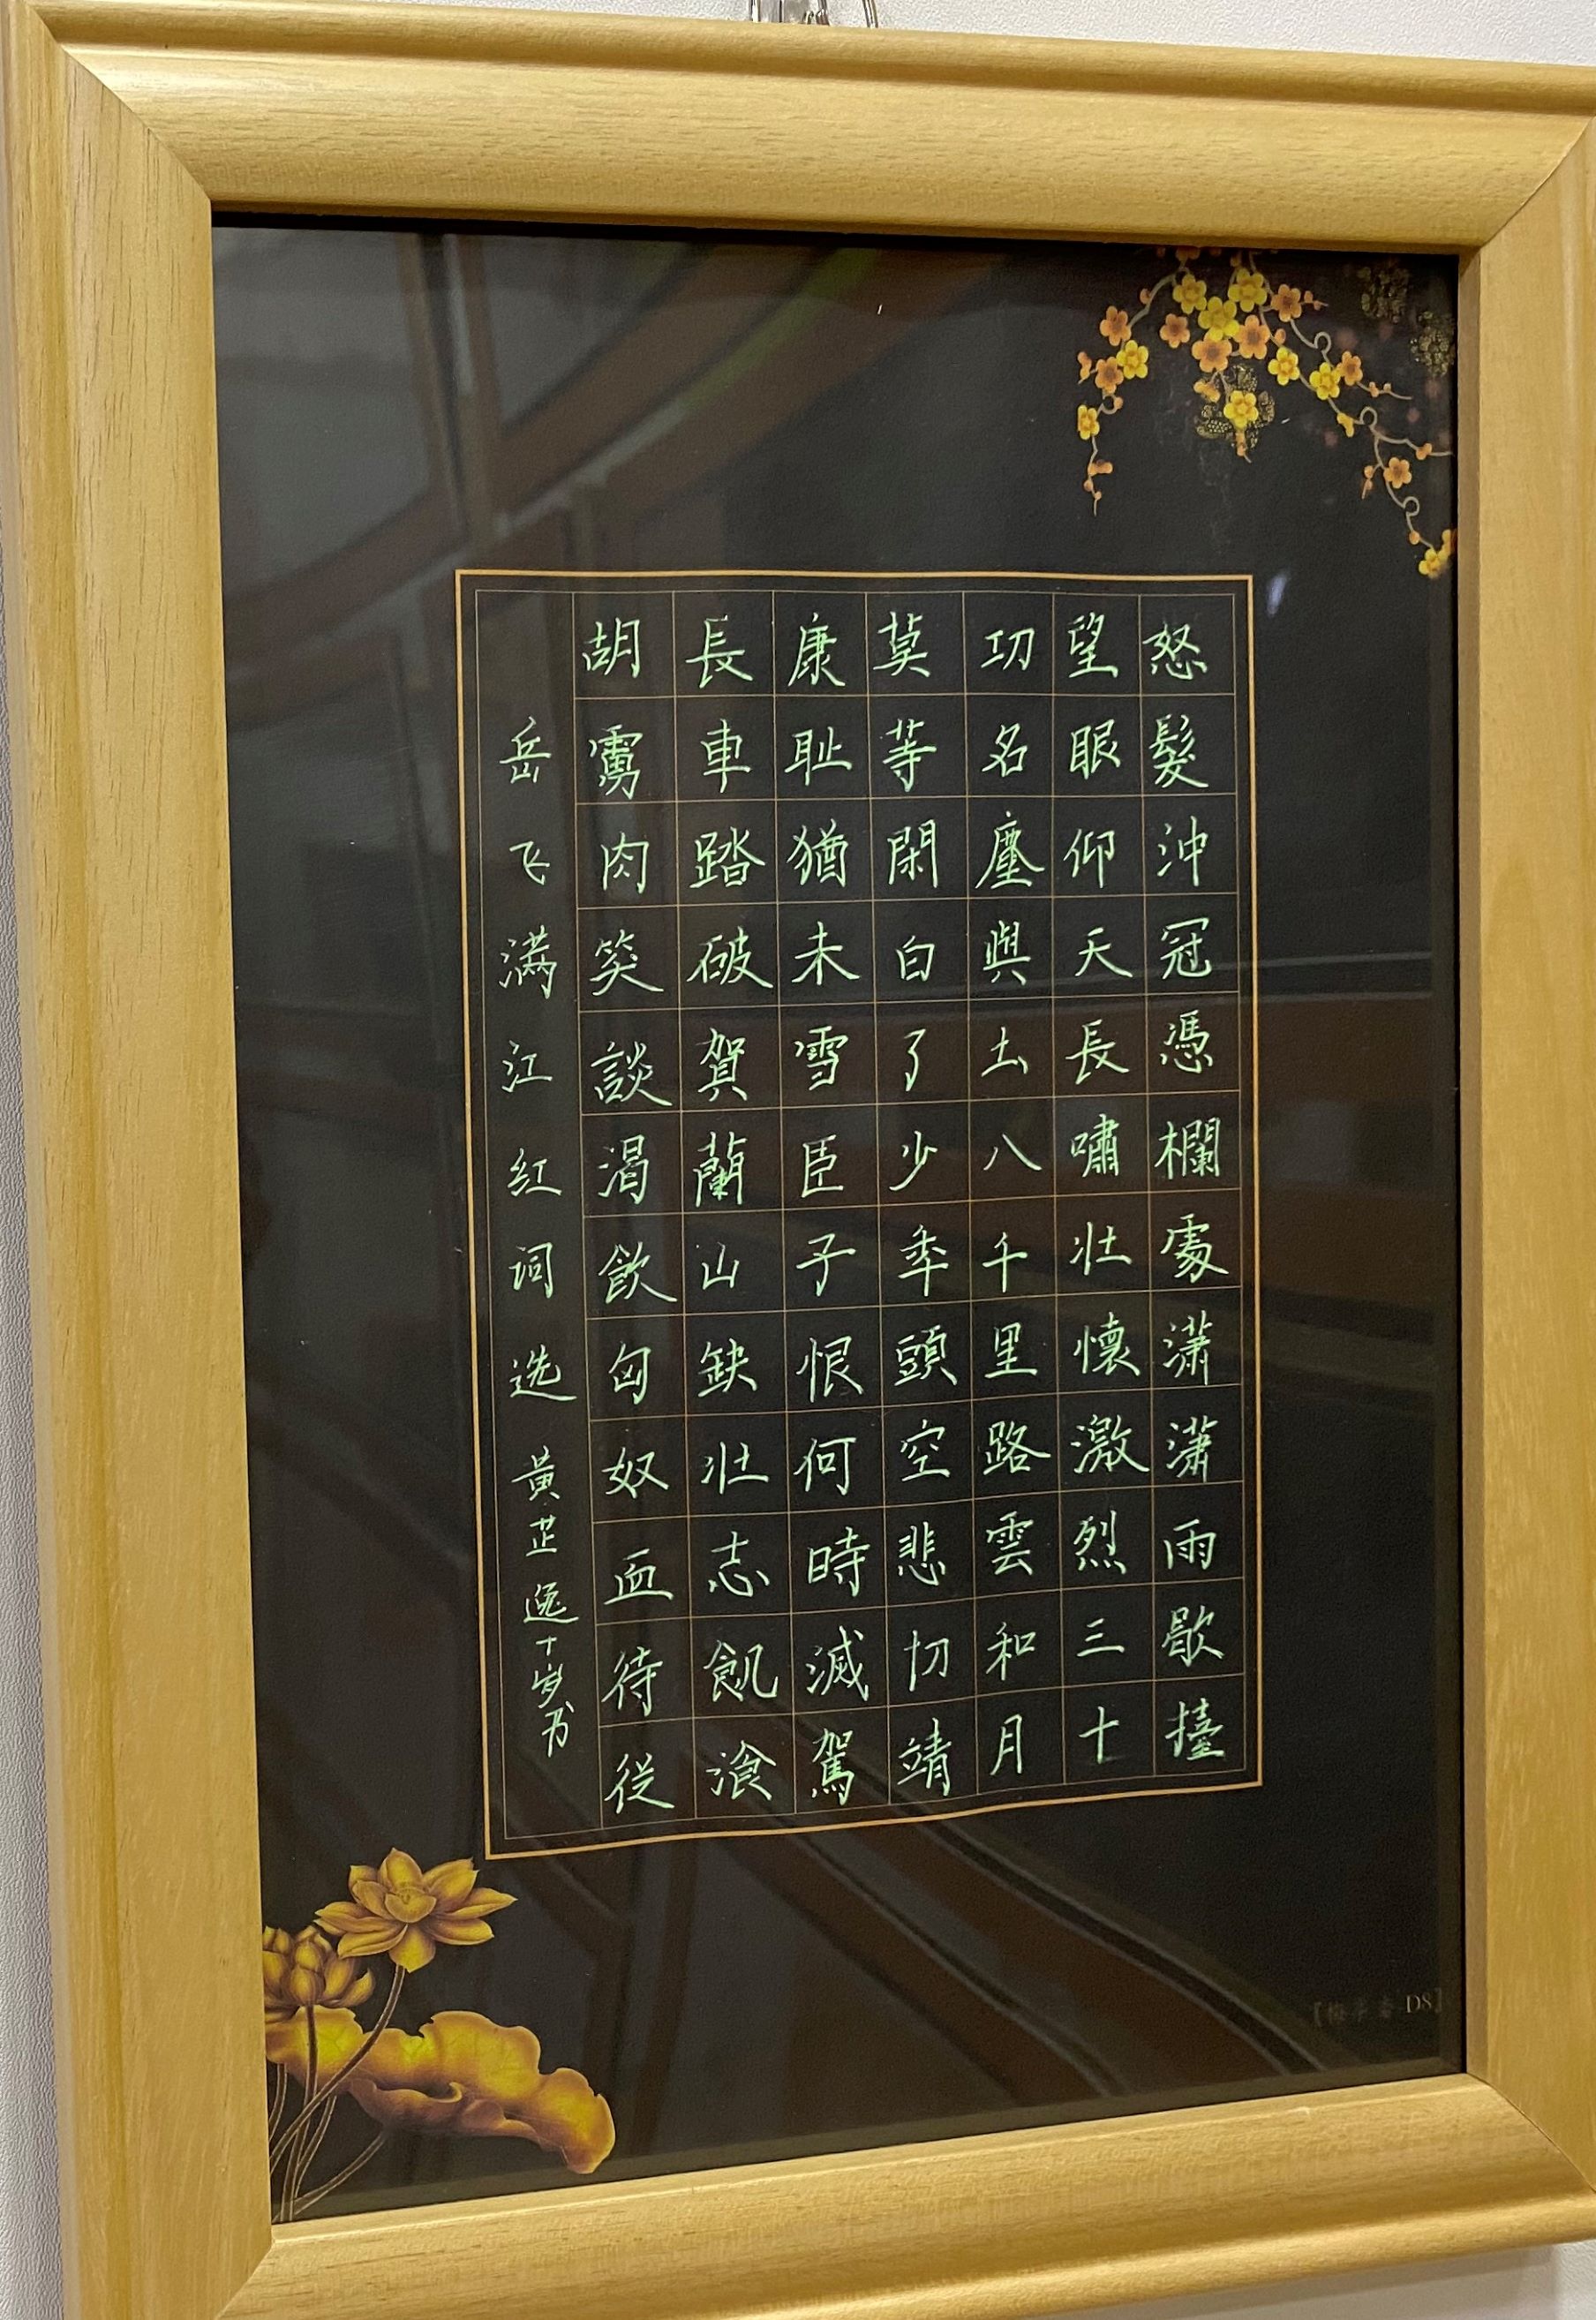 怒髮沖冠憑欄處潇潇雨歇擡
望眼仰天長嘯壯懷激烈三十
功名塵與土八千里路雲和月
莫等閑白了少年頭空悲切靖
康耻猶未雪臣子恨何時滅駕
長車踏破賀蘭山缺壯志飢飡
胡虜肉笑談渴飲匈奴血待從
岳飞满江红词选 黄芷逸十岁书
D8